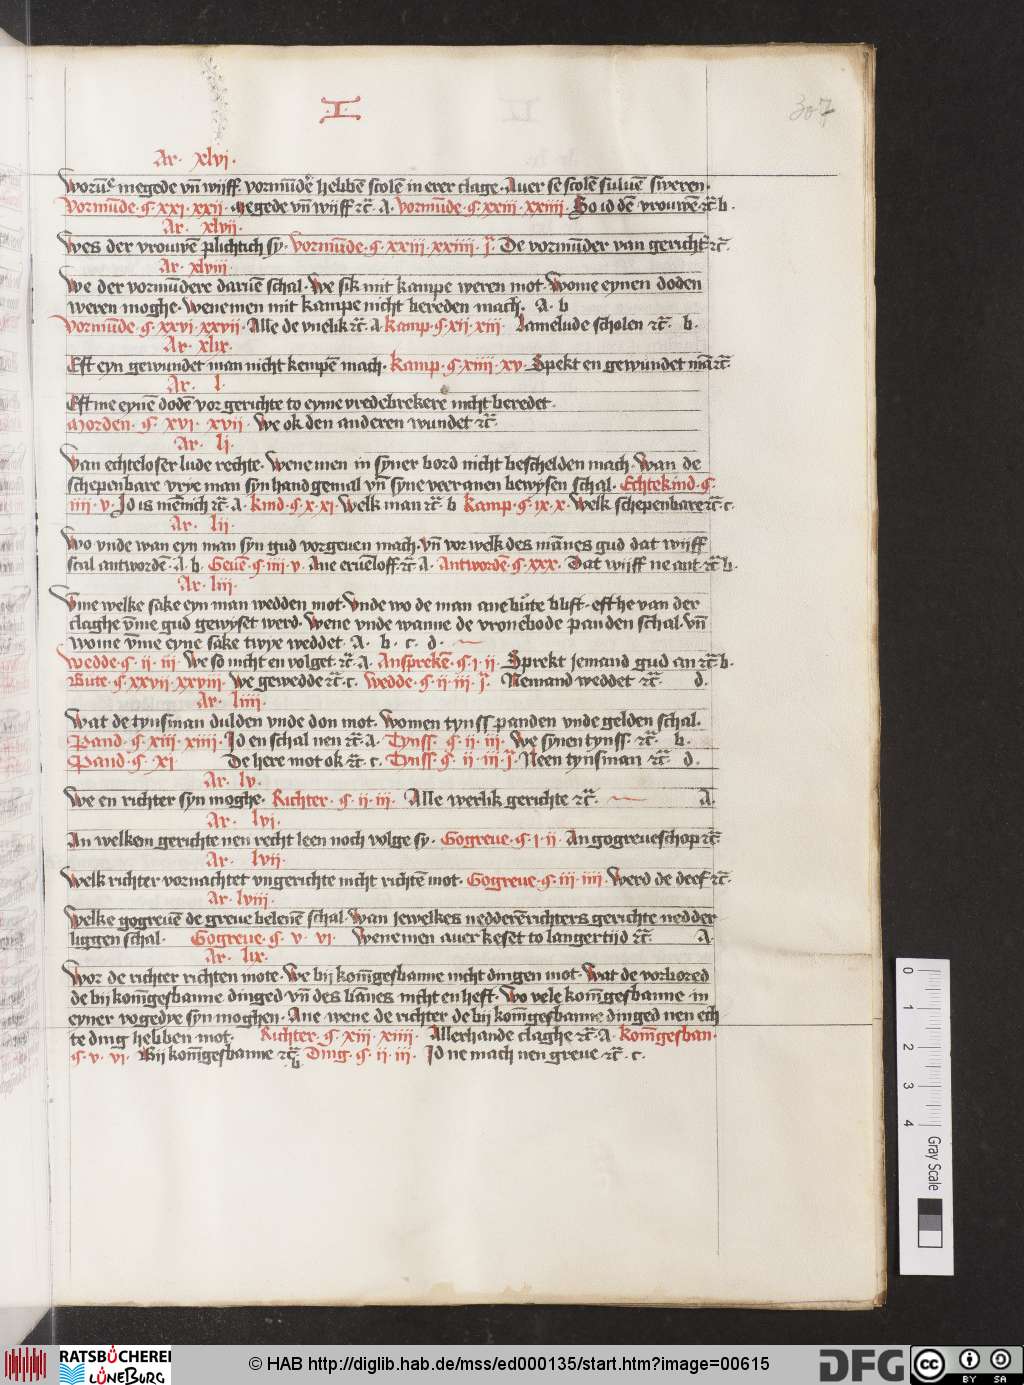 I
307
Ar. xlvi.
Worūme megede vn̄ wijff. vormūdē hebbē scolē in erer clage. Auer se scolē suluē sweren.
Vormūde. ꝯ. xxi. xxii. Megede vn̄ wijff ꝛc̄. A. vormūde. ꝯ. xxiii. xxiiii. So id dē vrouwē ꝛc̄ b.
Ar. xlvii.
Wes der vrouwē plichtich sy. vormūde. ꝯ. xxiii. xxiiii. j. De vormūder van gericht ꝛc̄.
Ar. xlviii.
We der vormūdere daruē schal. We sik mit kampe weren mot. Wome eynen doden
weren moghe. Wenemen mit kampe nicht bereden mach. A. b
Vormūde. ꝯ. xxvi. xxvii. Alle de vnelik ꝛc̄. A kamp. ꝯ. xii. xiii. Lamelude scholen ꝛc̄. b.
Ar. xlix.
Eft eyn gewundet man nicht kempē mach. kamp. ꝯ. xiiii. xv. Sprekt en gewundet mā ꝛc̄.
Ar. l.
Eft me eynē dodē vor gerichte to eyme vredebrekere nicht beredet.
Morden. ꝯ. xvi. xvii. We ok den anderen wundet ꝛc̄.
Ar. li.
Van echteloser lude rechte. Wenemen in syner bord nicht beschelden mach. Wan de
schepenbare vrye man syn handgemal vn̄ syne veer anen bewysen schal. Echtekind. ꝯ.
iiii. v. Id is mēnich ꝛc̄. A. kind. ꝯ. x. xi. Welk man ꝛc̄. b kamp. ꝯ. ix. x. Welk schepenbare ꝛc̄. c.
Ar. lii.
Wo vnde wan eyn man syn gud vorgeuen mach. vn̄ vor welk des mānes gud dat wijff
scal antwordē. A. b. Geuē. ꝯ. iiii. v. Ane eruēloff. ꝛc̄ A. Antwordē. ꝯ. xxx. Dat wijff ne ant ꝛc̄ b.
Ar. liii.
Vm̄e welke sake eyn man wedden mot. Vnde wo de man ane bute blift. eft he van der
claghe vm̄e gud gewyset werd. Wene vnde wanne de vronebode panden schal. vn̄
wome vm̄e eyne sake twye weddet. A. b. c. d.
Wedde. ꝯ. ii. iii. We so nicht en volget ꝛc̄. A. Ansprekē. ꝯ. i. ii. Sprekt jemand gud an ꝛc̄ b.
Bute. ꝯ. xxvii. xxviii. We gewedde ꝛc̄. c. Wedde. ꝯ. ii. iii. j. Nemand weddet ꝛc̄. d.
Ar. liiii.
Wat de tynsman dulden vnde don mot. Women tynss panden vnde gelden schal.
Pand. ꝯ. xiii. xiiii. Id en schal nen ꝛc̄. A. Tynss. ꝯ. ii. iii. We synen tynss. ꝛc̄. b.
Pand. ꝯ. xi. De here mot ok ꝛc̄. c. Tynss. ꝯ. ii. iii. j. Neen tynsman ꝛc̄. d.
Ar. lv.
We en richter syn moghe. Richter. ꝯ. ii. iii. Alle werlik gerichte ꝛc̄. A.
Ar. lvi.
An welkem gerichte nen recht leen noch volge sy. Gogreue. ꝯ. i. ii. An gogreueschop ꝛc̄.
Ar. lvii.
Welk richter vornachtet vngerichte nicht richtē mot. Gogreue. ꝯ. iii. iiii. Werd de deef ꝛc̄.
Ar. lviii.
Welke gogreuē de greue belenē schal. Wan jewelkes nedderērichters gerichte nedder
liggen schal. Gogreue. ꝯ. v. vi. Wenemen auer keset to langer tijd ꝛc̄. A.
Ar. lix.
Wor de richter richten mote. We bij kom̄gesbanne nicht dingen mot. Wat de vorbored
de bij kom̄gesbanne dinged vn̄ des bānes nicht en heft. Wo vele kom̄gesbanne in
eyner vogedye syn moghen. Ane wene de richter de bij kom̄gesbanne dinged nen ech
te ding hebben mot. Richter. ꝯ. xiii. xiiii. Allerhande claghe ꝛc̄. A. Kom̄gesban.
ꝯ. v. vi. Bij kom̄gesbanne ꝛc̄. b Ding. ꝯ. ii. iii. Id ne mach nen greue ꝛc̄. c.
0 1 2 3 4
Gray Scale
RATSBÜCHEREI
LÜNEBURG
© HAB http://diglib.hab.de/mss/ed000135/start.htm?image=00615
DFG
cc
BY SA